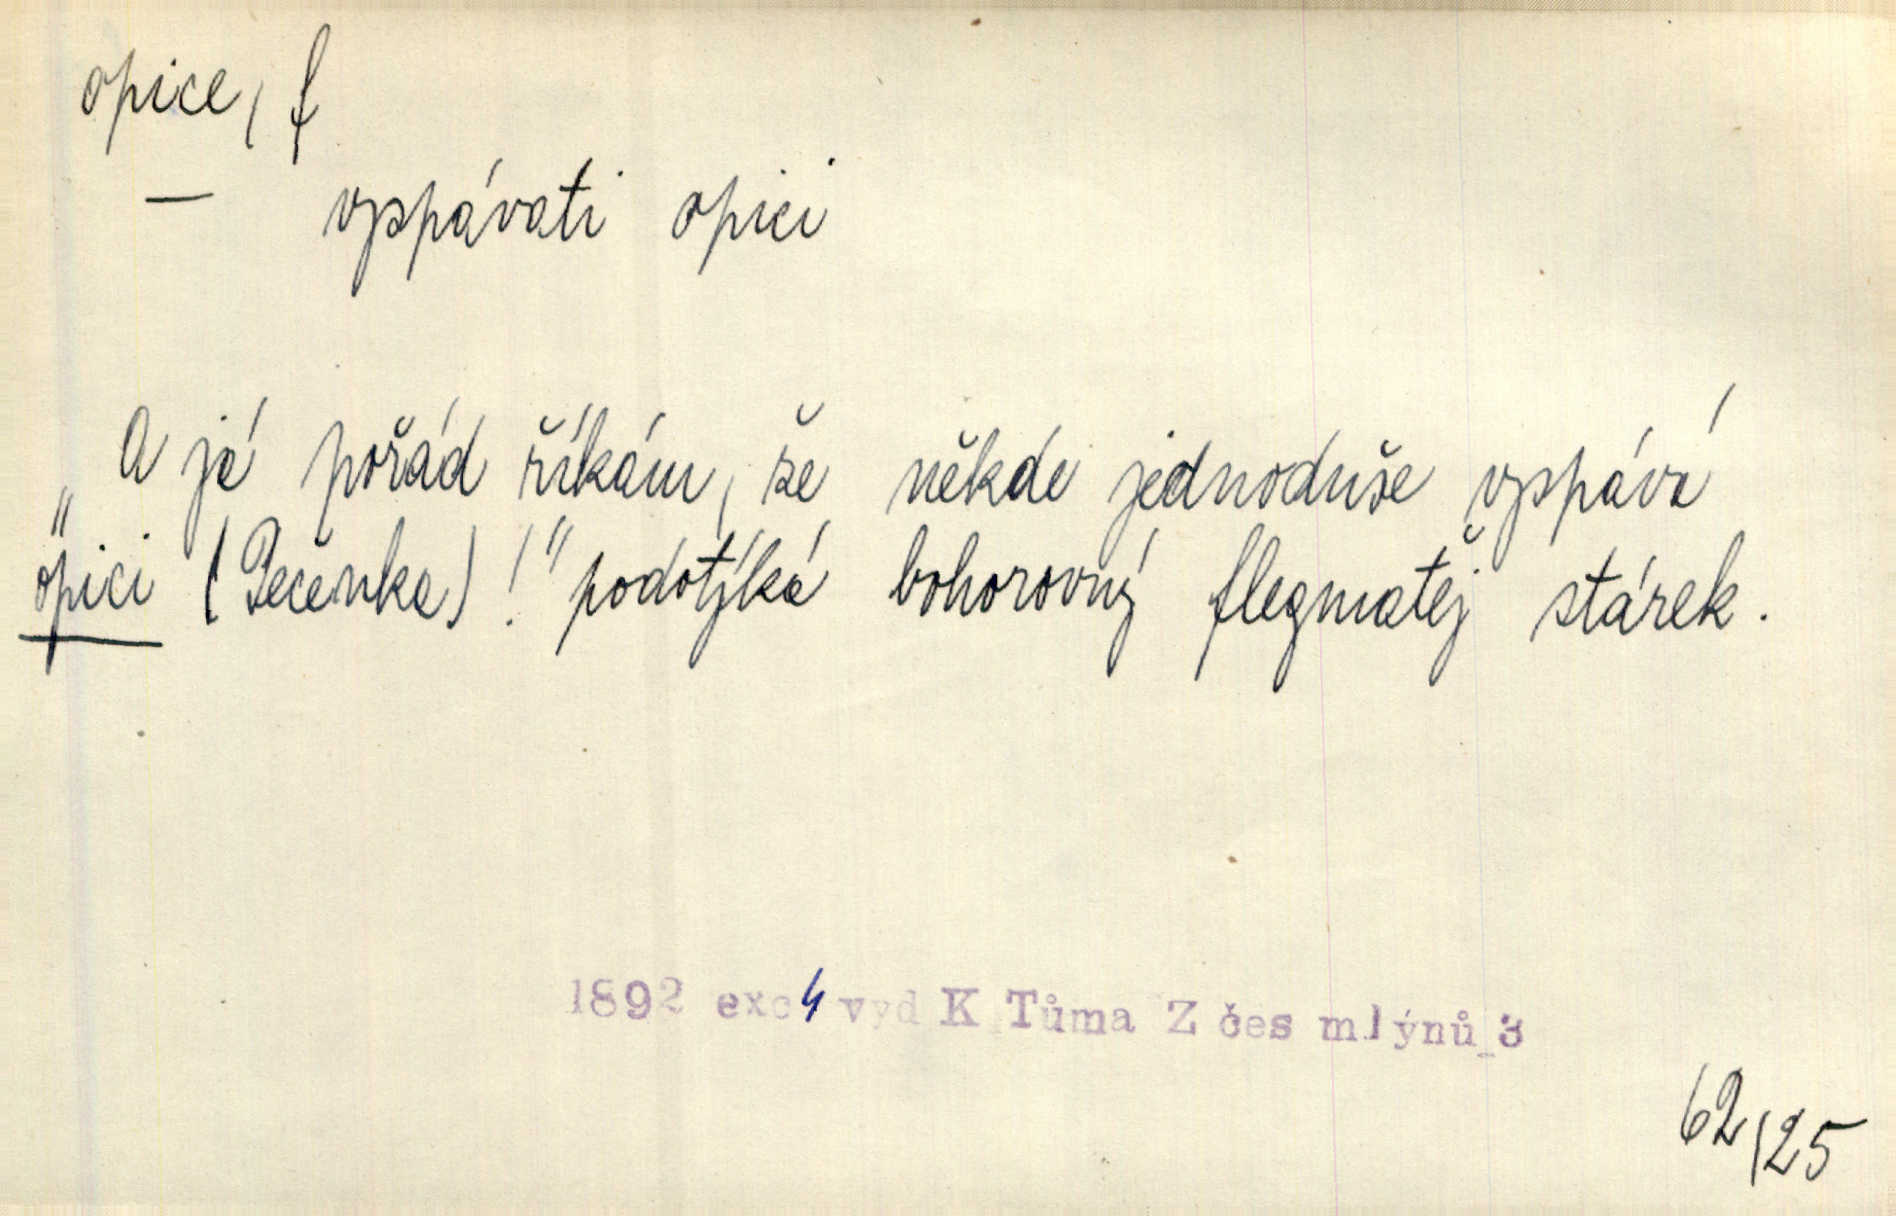 opice, f
— vyspávati opici
„A já pořád říkám, že někde jednoduše vyspává
opici (Pečenka)!" podotýká bohorovný flegmatěj stárek.
1892 exc 4 vyd K Tůma Z čes mlýnů 3
62/25